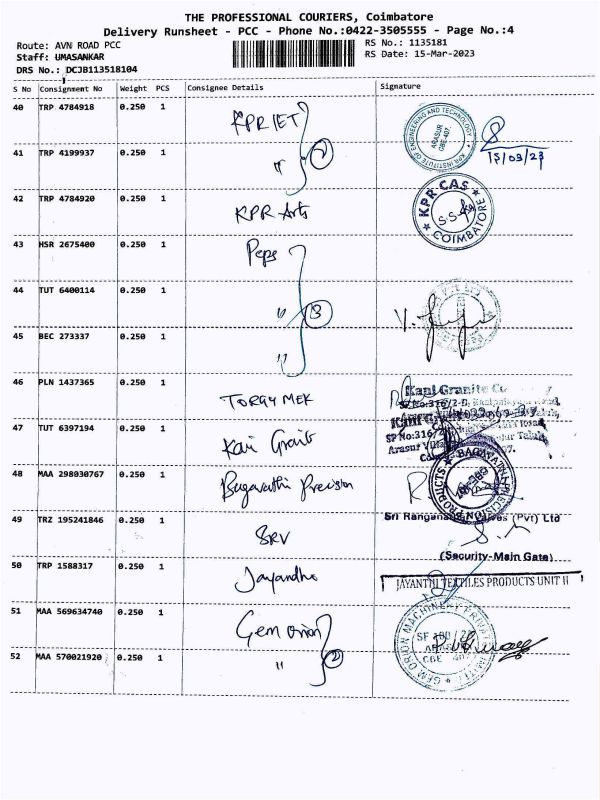 THE PROFESSIONAL COURIERS, Coimbatore
Delivery Runsheet - PCC - Phone No.:0422-3505555 - Page No.:4
Route: AVN ROAD PCC RS No.: 1135181
Staff: UMASANKAR RS Date: 15-Mar-2023
DRS No.: DCJB113518104
S No Consignment No Weight PCS Consignee Details Signature
40 TRP 4784918 0.250 1 KPRIET
KPR INSTITUTE OF ENGINEERING AND TECHNOLOGY
ARASUR
CBE-407.
15/03/23
41 TRP 4199937 0.250 1 " 2
42 TRP 4784920 0.250 1 KPR Arts
KPR CAS
COIMBATORE
43 HSR 2675400 0.250 1 Peps
44 TUT 6400114 0.250 1 " 3
45 BEC 273337 0.250 1 "
46 PLN 1437365 0.250 1 TORGY MEK
Kani Granite
47 TUT 6397194 0.250 1 Kani Granite
SF No:316/2
Arasur
48 MAA 298030767 0.250 1 Bagavathi Precision
BAGAVATHI PRECISION PRODUCTS
49 TRZ 195241846 0.250 1 SRV
(Pvt) Ltd
(Security-Main Gate)
50 TRP 1588317 0.250 1 Jayandho
JAYANTHI TEXTILES PRODUCTS UNIT II
51 MAA 569634740 0.250 1 Gem orion
GEM ORION MACHINERY PRIVATE LIMITED
52 MAA 570021920 0.250 1 " 2